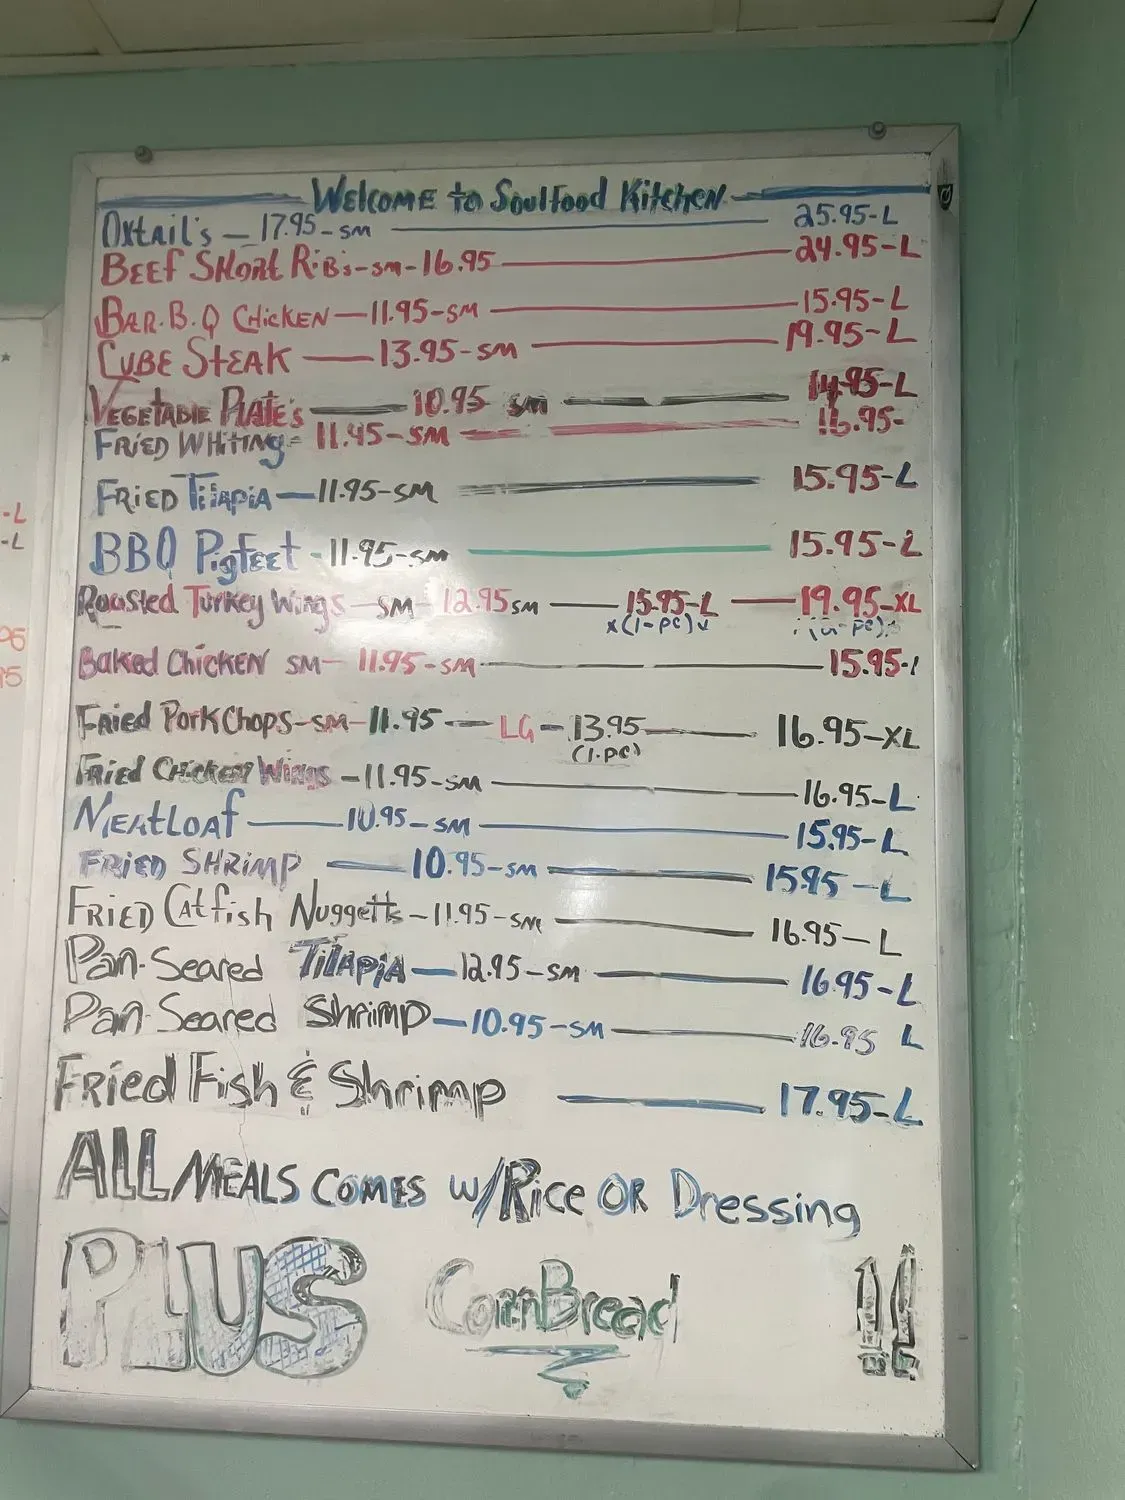 Welcome to Soulfood Kitchen
Oxtail's - 17.95-SM 25.95-L
Beef Short Rib's-SM-16.95 24.95-L
Bar.B.Q Chicken-11.95-SM 15.95-L
Cube Steak - 13.95-SM 19.95-L
Vegetable Plate's 10.95 SM 14.95-L
Fried Whiting- 11.45-SM 16.95-
Fried Tilapia-11.95-SM 15.95-L
BBQ Pigfeet -11.95-SM 15.95-L
Roasted Turkey Wings-SM-12.95SM - 15.95-L - 19.95-XL
(1-PC)
Baked Chicken SM- 11.95-SM 15.95-
Fried Pork Chops-SM-11.95 - LG-13.95 16.95-XL
(1.PC)
Fried Chicken Wings -11.95-SM 16.95-L
Meatloaf 10.95-SM 15.95-L
Fried Shrimp 10.95-SM 15.95-L
Fried Catfish Nuggetts-11.95-SM 16.95-L
Pan-Seared Tilapia-12.95-SM 16.95-L
Pan-Seared Shrimp-10.95-SM 16.95 L
Fried Fish & Shrimp 17.95-L
ALL MEALS COMES W/Rice OR Dressing
PLUS CornBread !!